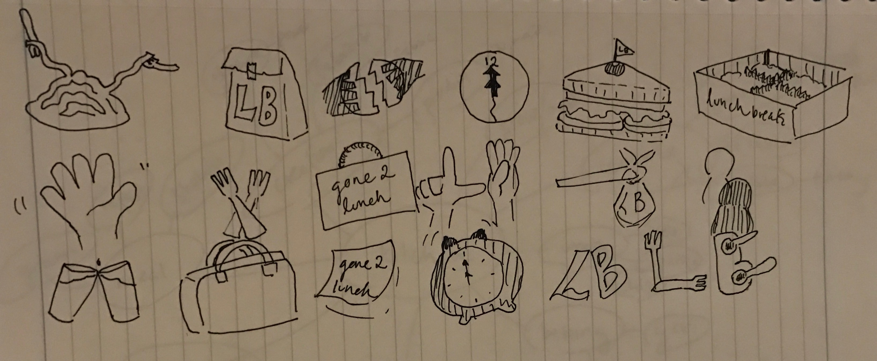 LB
12
LB
lunch break
gone 2
lunch
LB
gone 2
lunch
LB